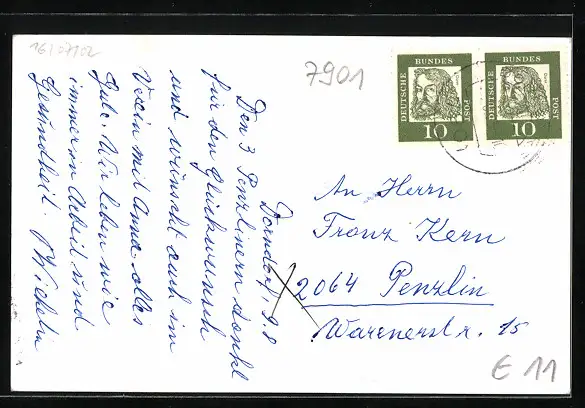 16/07102
7901
DEUTSCHE
BUNDES
POST
10
DEUTSCHE
BUNDES
POST
10
Dorndorf, 9.8
Den 3 Penzlinern dankt
für den Glückwunsch
und wünscht auch im
Verein mit Anna alles
Gute. Wir leben wie
immer in Arbeit und
Gesundheit.
An Herrn
Franz Kern
2064 Penzlin
Warenerstr. 15
E 11